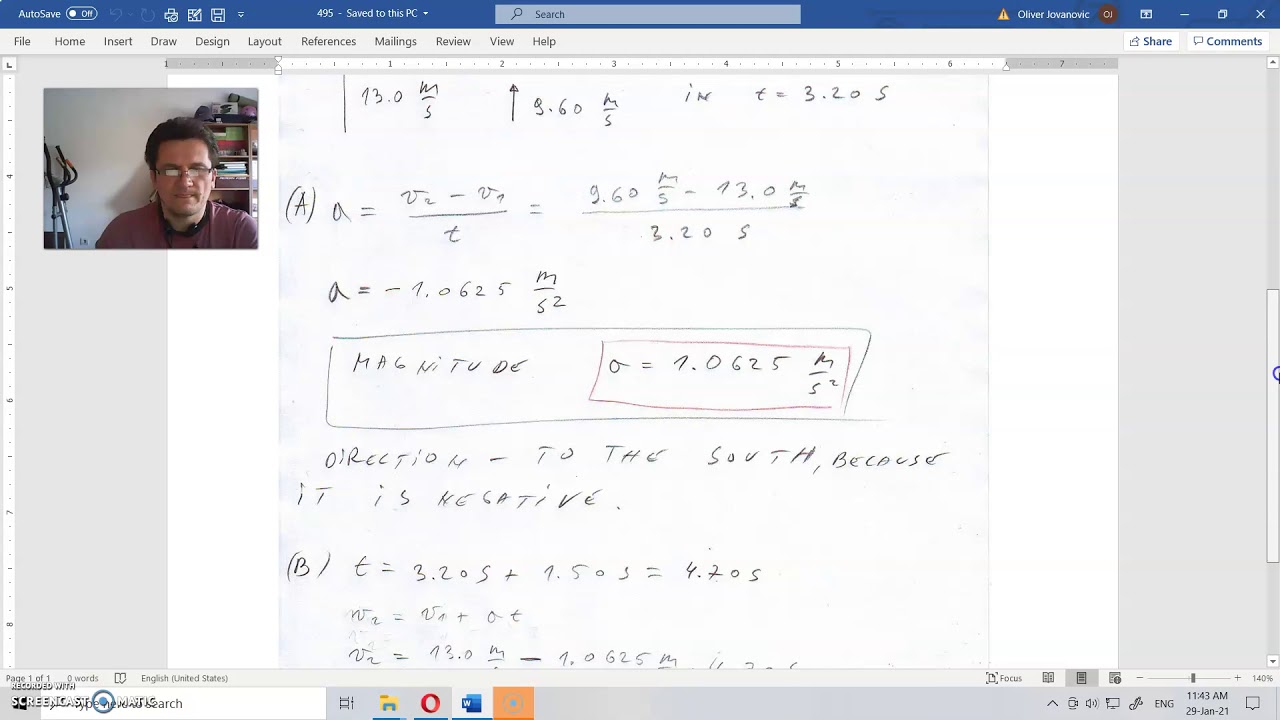 AutoSave Off 495 - Saved to this PC Search Oliver Jovanovic OJ
File Home Insert Draw Design Layout References Mailings Review View Help Share Comments
1 1 2 3 4 5 6 7
13.0 m/s ↑ 9.60 m/s in t = 3.20 s
(A) a = (v2 - v1)/t = (9.60 m/s - 13.0 m/s)/(3.20 s)
a = -1.0625 m/s2
MAGNITUDE a = 1.0625 m/s2
DIRECTION - TO THE SOUTH, BECAUSE
IT IS NEGATIVE.
(B) t = 3.20 s + 1.50 s = 4.70 s
v2 = v1 + at
v2 = 13.0 m/s - 1.0625 m
4
5
6
7
8
Page 1 of 1 0 words English (United States) Focus 140%
RECORDED WITH
SCREENCAST MATIC
search
ENG
11:43 AM
29-Jan-21